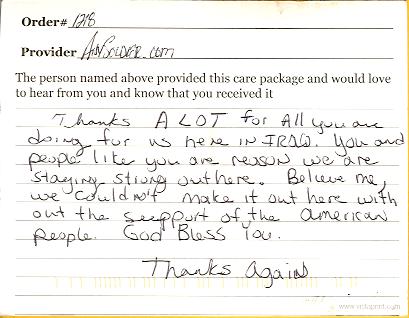 Order# 1218
Provider AnySoldier.com
The person named above provided this care package and would love
to hear from you and know that you received it
Thanks A LOT for All you are
doing for us here in IRAQ. You and
people like you are reason we are
staying strong out here. Believe me,
we couldn't make it out here with
out the seepport of the American
people. God Bless You.
Thanks Again
www.vistaprint.com